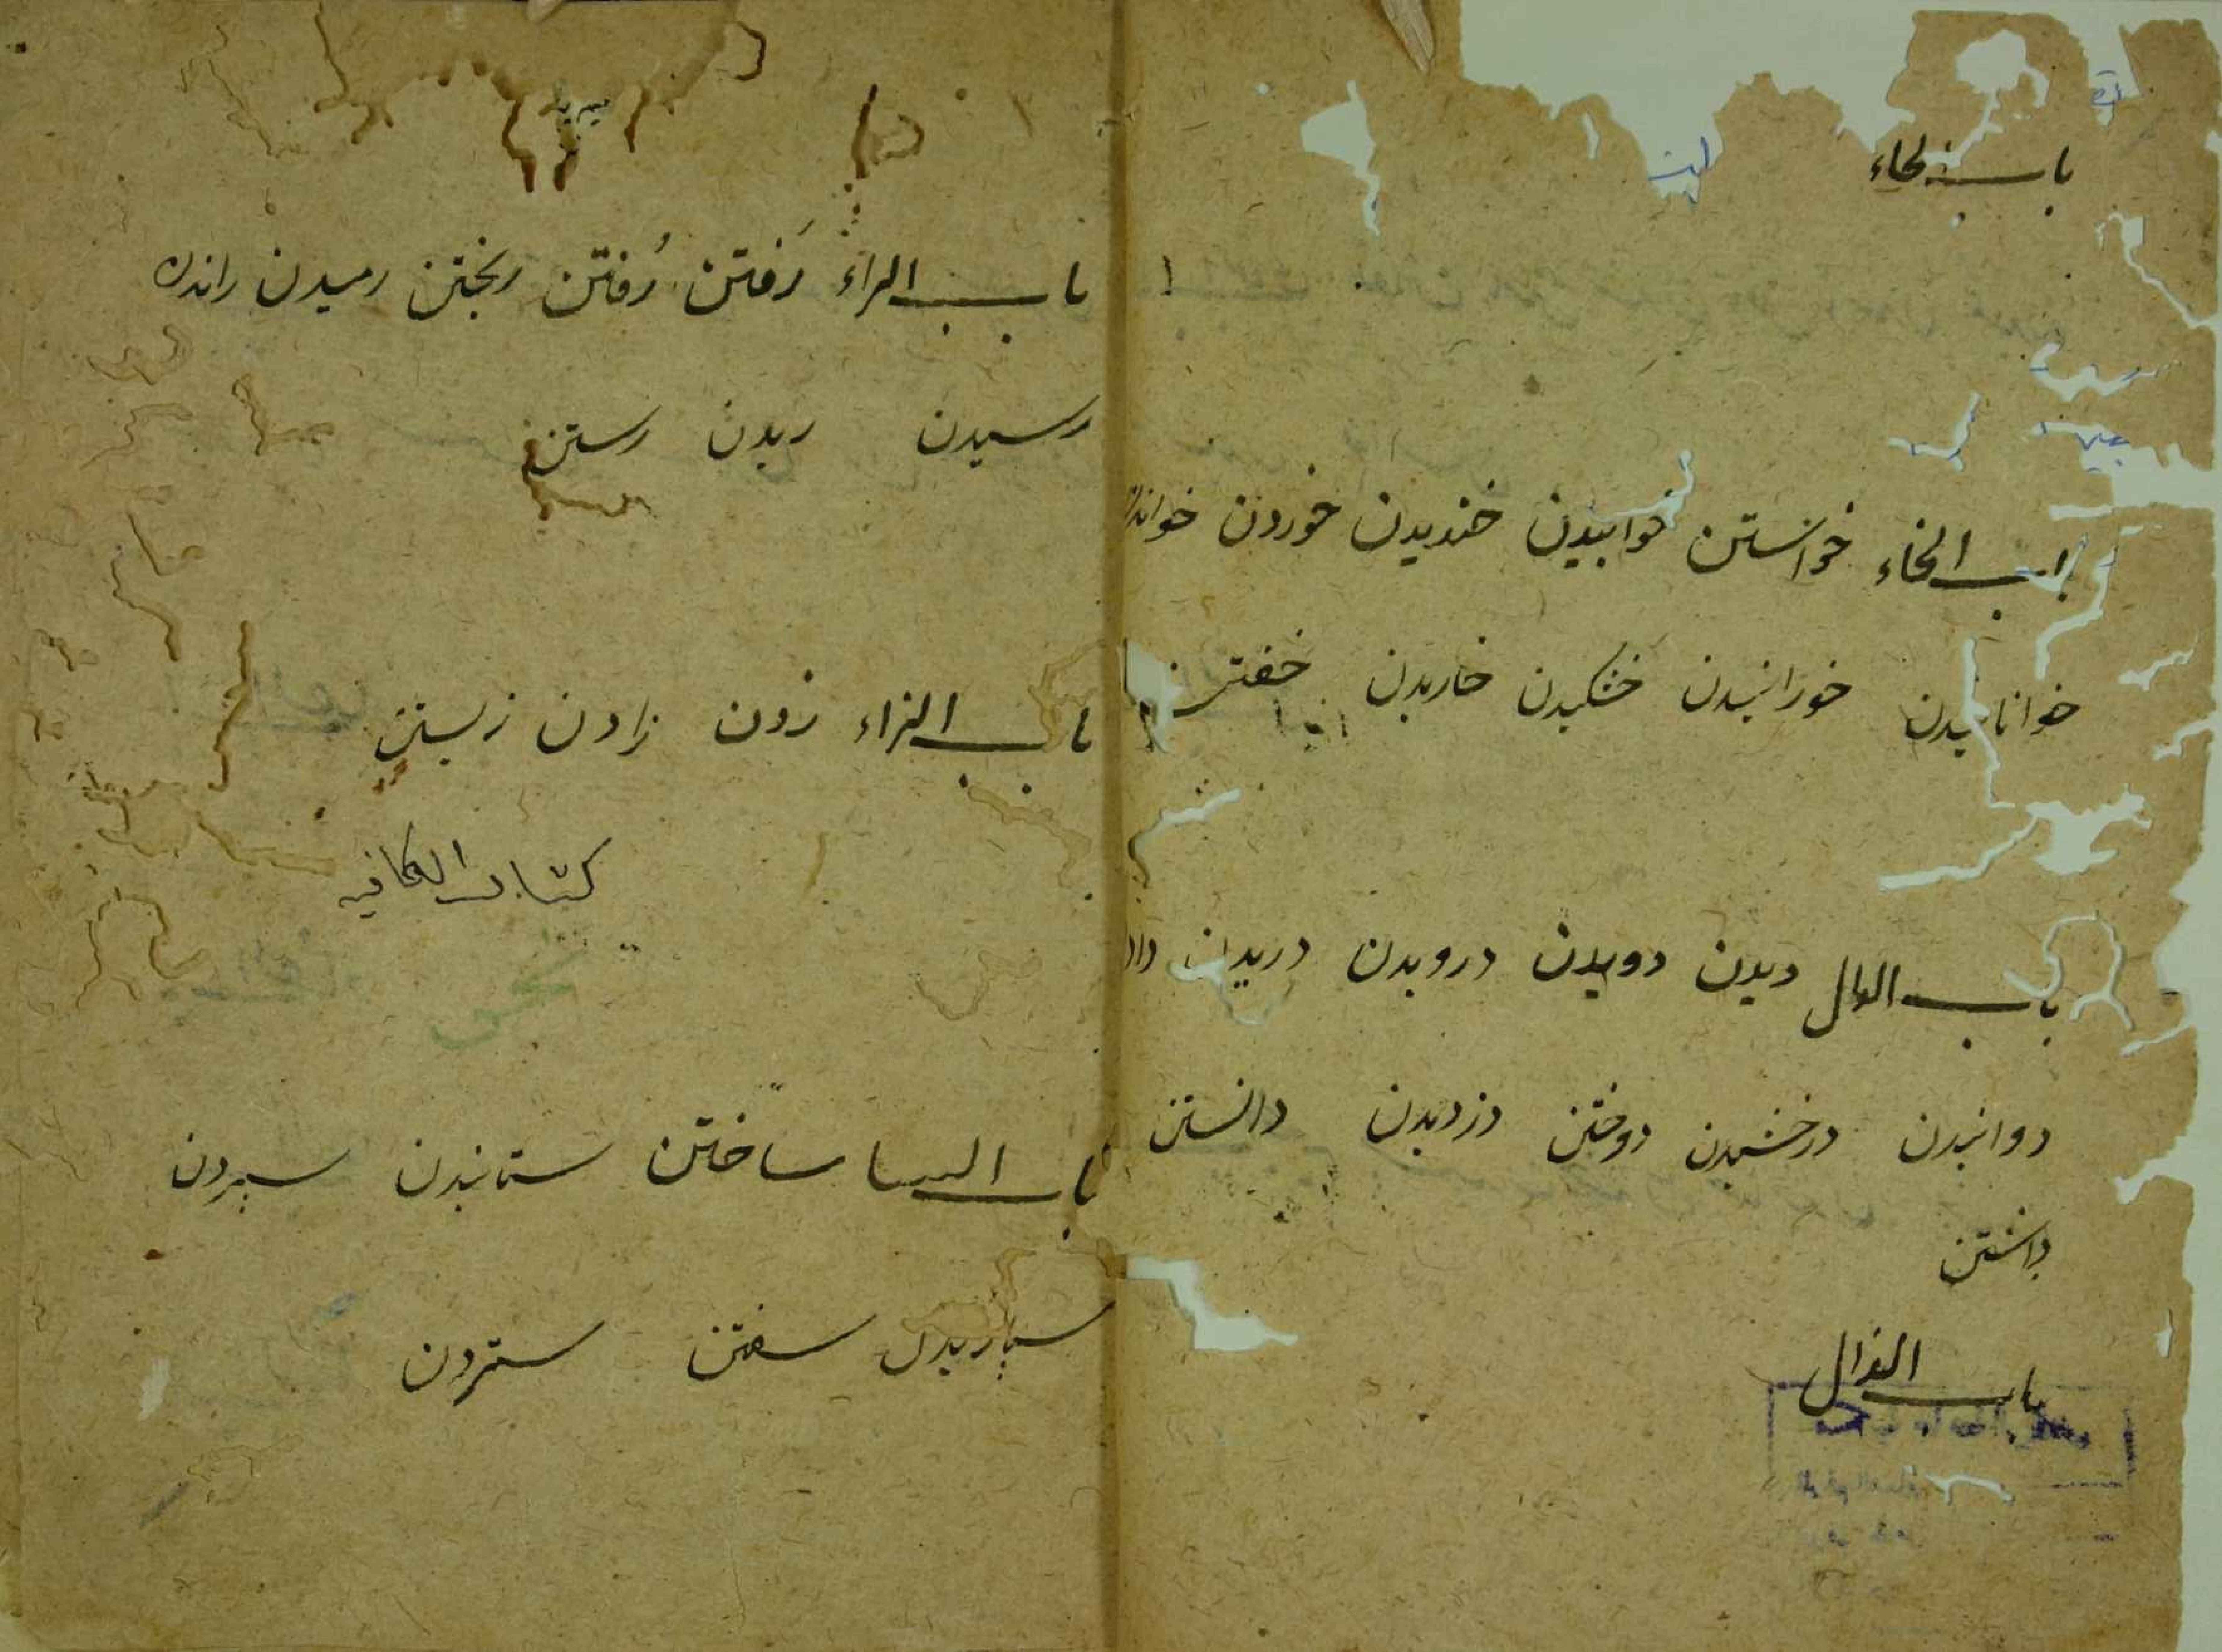 باب الحاء
باب الخاء خواستن خوابیدن خندیدن خوردن خواندن
خوانانیدن خورانیدن خشکیدن خاریدن خفتن
باب الدال دیدن دویدن درویدن دریدن
دوانیدن درخشیدن دوختن دزدیدن دانستن
داشتن
باب الذال
باب الراء رَفتن رُفتن ریختن رمیدن راندن
رسیدن ریدن رستن
باب الزاء زدن زادن زیستن
کتاب الکافیه
نحو
باب السا ساختن ستانیدن سپردن
سپاریدن سفتن ستردن